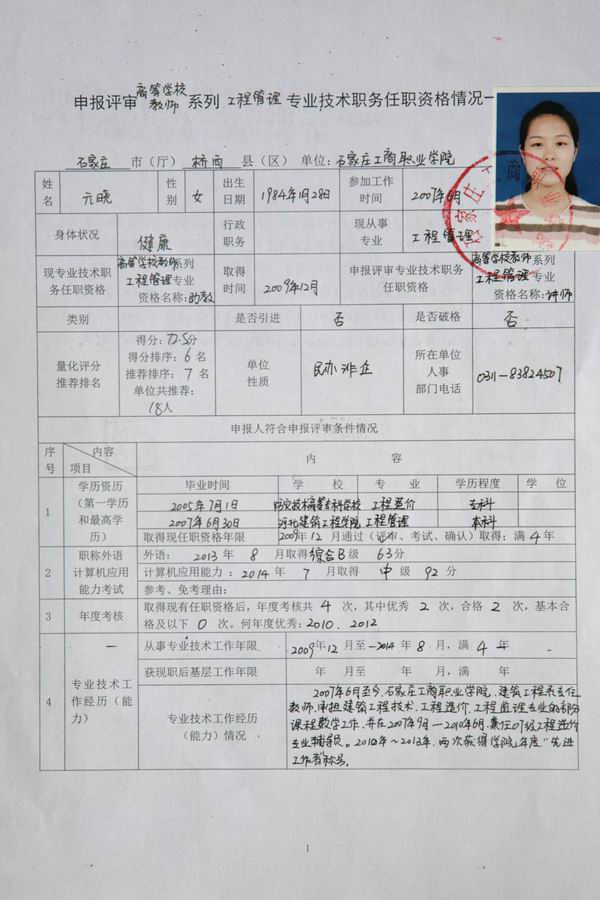 申报评审高等学校教师系列 工程管理 专业技术职务任职资格情况一
石家庄 市（厅） 桥西 县（区） 单位：石家庄工商职业学院
姓名 亢晓 性别 女 出生日期 1984年1月28日 参加工作时间 2007年6月
身体状况 健康 行政职务 现从事专业 工程管理
现专业技术职务任职资格 高等学校教师系列 工程管理专业 资格名称：助教 取得时间 2009年12月 申报评审专业技术职务任职资格 高等学校教师系列 工程管理专业 资格名称：讲师
类别 是否引进 否 是否破格 否
量化评分推荐排名 得分：72.5分 得分排序：6名 推荐排序：7名 单位共推荐：18人 单位性质 民办非企 所在单位人事部门电话 0311-83824507
申报人符合申报评审条件情况
序号 内容 项目 内 容
1 学历资历（第一学历和最高学历） 毕业时间 学 校 专 业 学历程度 学 位
2005年7月1日 防灾技术高等专科学校 工程造价 专科
2007年6月30日 河北建筑工程学院 工程管理 本科
取得现任职资格年限 2009年12月通过（评审、考试、确认）取得；满4年
2 职称外语计算机应用能力考试 外语：2013年8月取得综合B级 63分
计算机应用能力：2014年7月取得 中级 92分
参考、免考理由：
3 年度考核 取得现有任职资格后，年度考核共4次，其中优秀2次，合格2次，基本合
格及以下0次。何年度优秀：2010、2012
4 专业技术工作经历（能力） 从事专业技术工作年限 2009年12月至2014年8月，满4年
获现职后基层工作年限 年 月至 年 月，满 年
专业技术工作经历（能力）情况 2007年6月至今，石家庄工商职业学院，建筑工程系专任
教师，承担建筑工程技术、工程造价、工程监理专业的部分
课程教学工作，并在2007年9月—2010年6月，兼任07级工程造价
专业辅导员。2012年～2013年，两次获得学院年度“先进
工作者”称号。
1